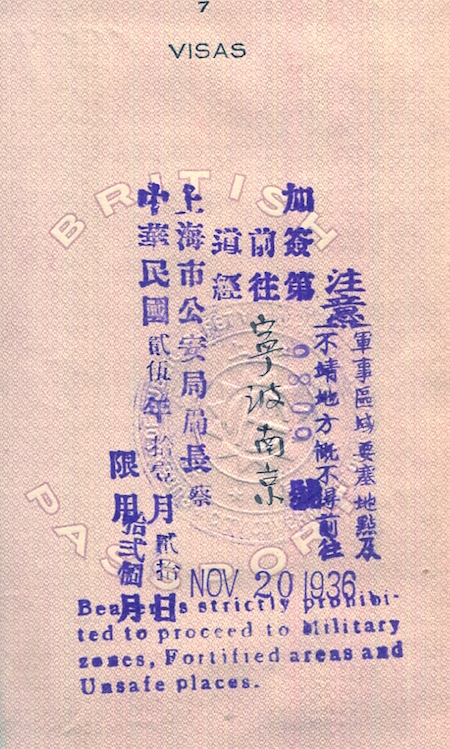 7
VISAS
BRITISH
注意
軍事區域要塞地點及
不靖地方概不得前往
加簽第 號
前往寧波南京
道經
上海市公安局局長蔡
中華民國貳伍年拾壹月貳拾日
限用拾弍個月
PASSPORT
NOV 20 1936
Bearer is strictly prohibi-
ted to proceed to Military
zones, Fortified areas and
Unsafe places.